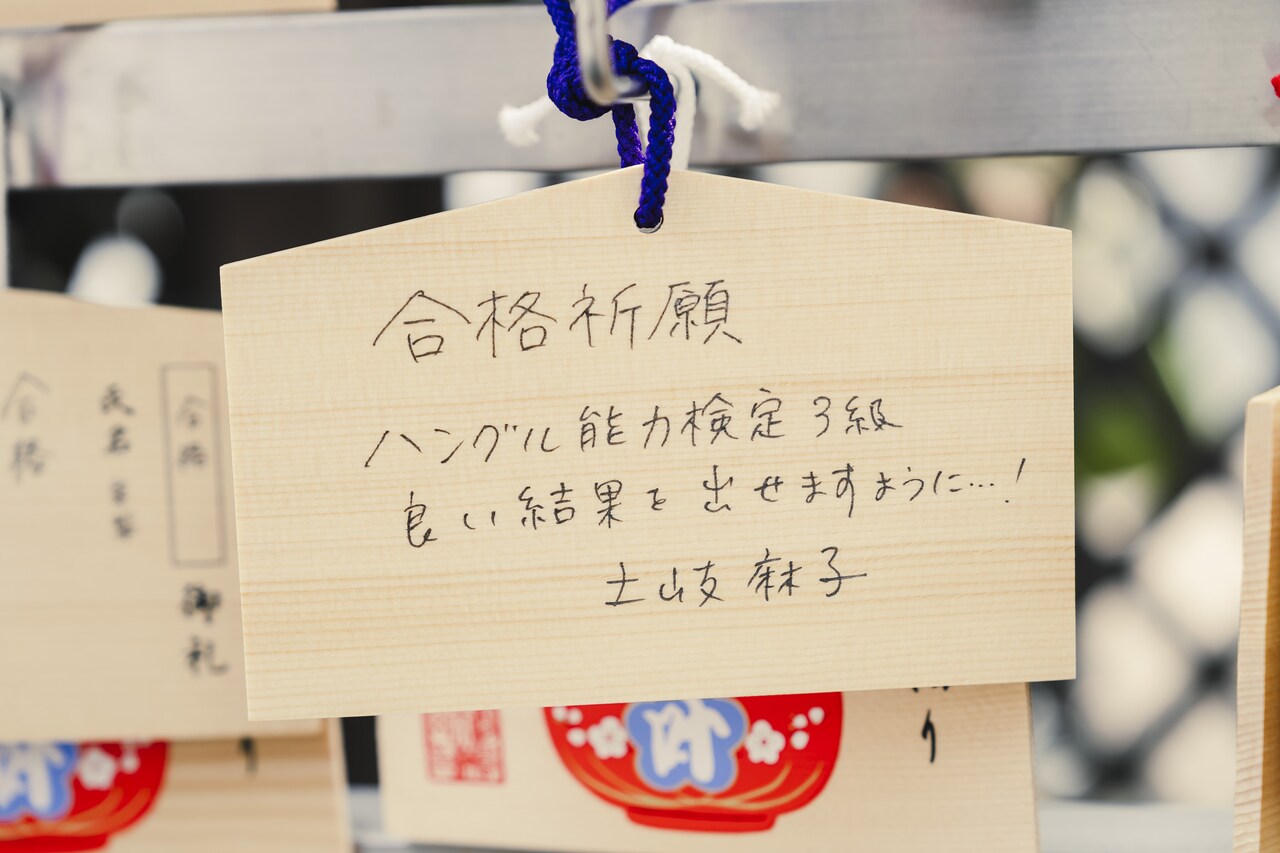 合格祈願
ハングル能力検定3級
良い結果を出せますように…!
土岐 麻子
合格
合格
御礼
り
叶